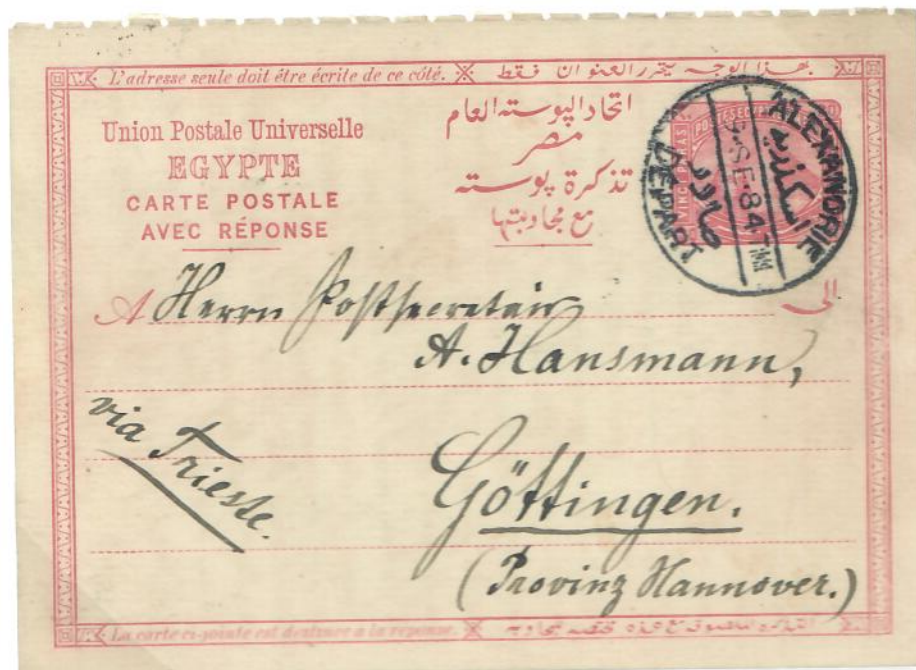 L'adresse seule doit être écrite de ce côté. بهذا الوجه يتحرر العنوان فقط
Union Postale Universelle
EGYPTE
CARTE POSTALE
AVEC RÉPONSE
اتحاد البوسته العام
مصر
تذكرة بوسته
مع مجاوبتها
ALEXANDRIE
اسكندريه
SE 84 TM
صادر
DEPART
VINGT PARAS
A Herrn Postsecretair الى
A. Hansmann,
via Trieste.
Göttingen.
(Provinz Hannover.)
La carte ci-jointe est destinée à la réponse.